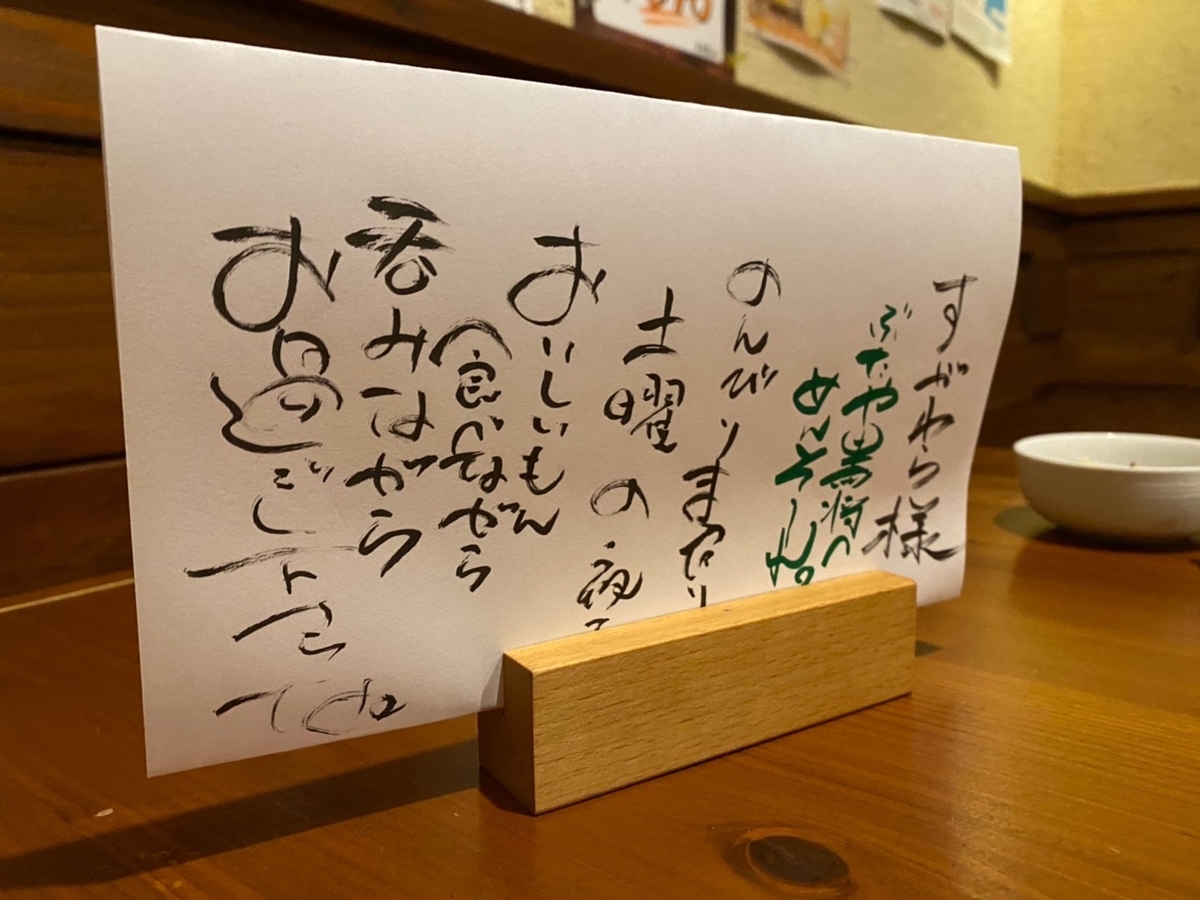 すがわら様
ぶたや黒將へ
めんそーれ。
のんびりまったり
土曜の夜
おいしいもん
食べながら
呑みながら
お過ごし下さいね